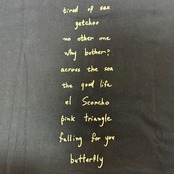 tired of sex
getchoo
no other one
why bother?
across the sea
the good life
el Scorcho
pink triangle
falling for you
butterfly